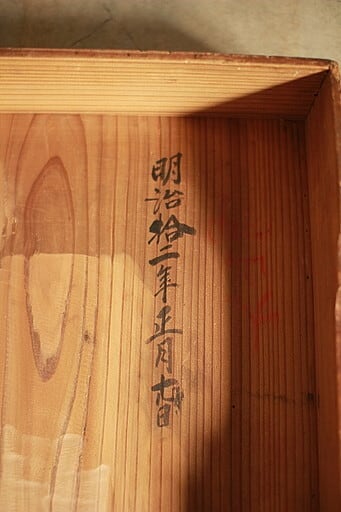 明治拾二年正月 日